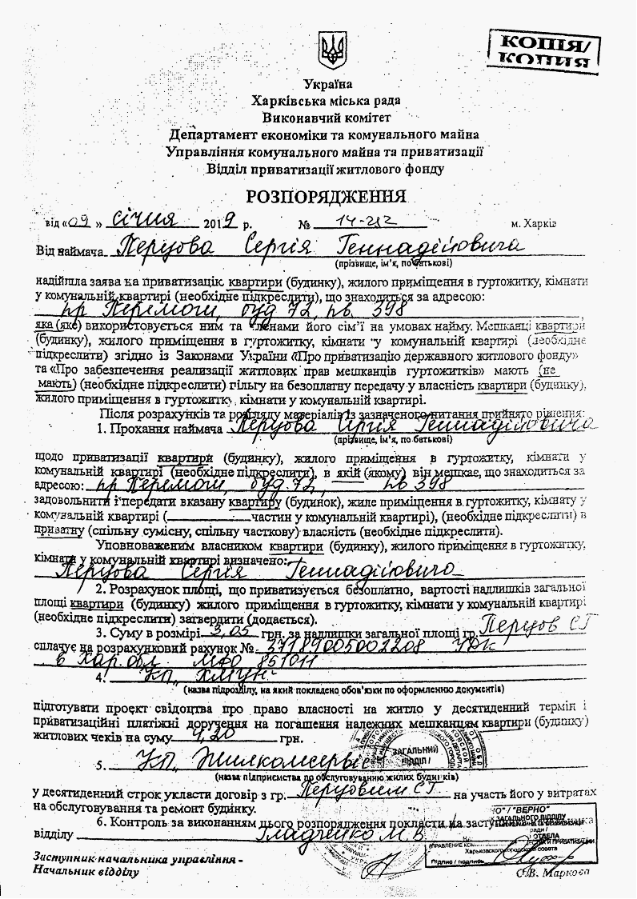 КОПІЯ/
КОПИЯ
Україна
Харківська міська рада
Виконавчий комітет
Департамент економіки та комунального майна
Управління комунального майна та приватизації
Відділ приватизації житлового фонду
РОЗПОРЯДЖЕННЯ
від «09» січня 2019 р. № 14-212 м. Харків
Від наймача Перцова Сергія Геннадійовича
(прізвище, ім'я, по батькові)
надійшла заява на приватизацію квартири (будинку), жилого приміщення в гуртожитку, кімнати
у комунальній квартирі (необхідне підкреслити), що знаходиться за адресою:
пр Перемоги, буд 72, кв. 398
яка (яке) використовується ним та членами його сім'ї на умовах найму. Мешканці квартири
(будинку), жилого приміщення в гуртожитку, кімнати у комунальній квартирі (необхідне
підкреслити) згідно із Законами України «Про приватизацію державного житлового фонду»
та «Про забезпечення реалізації житлових прав мешканців гуртожитків» мають (не
мають) (необхідне підкреслити) пільгу на безоплатну передачу у власність квартири (будинку),
жилого приміщення в гуртожитку, кімнати у комунальній квартирі.
Після розрахунків та розгляду матеріалів із зазначеного питання прийнято рішення:
1. Прохання наймача Перцова Сергія Геннадійовича
(прізвище, ім'я, по батькові)
щодо приватизації квартири (будинку), жилого приміщення в гуртожитку, кімнати у
комунальній квартирі (необхідне підкреслити), в якій (якому) він мешкає, що знаходиться за
адресою: пр Перемоги, буд. 72, кв 398
задовольнити і передати вказану квартиру (будинок), жиле приміщення в гуртожитку, кімнату у
комунальній квартирі (________ частин у комунальній квартирі), (необхідне підкреслити) в
приватну (спільну сумісну, спільну часткову) власність (необхідне підкреслити).
Уповноваженим власником квартири (будинку), жилого приміщення в гуртожитку,
кімнати у комунальній квартирі визначено:
Перцова Сергія Геннадійовича
2. Розрахунок площі, що приватизується безоплатно, вартості надлишків загальної
площі квартири (будинку) жилого приміщення в гуртожитку, кімнати у комунальній квартирі
(необхідне підкреслити) затвердити (додається).
3. Суму в розмірі 3,05 грн. за надлишки загальної площі гр. Перцов СГ
сплачує на розрахунковий рахунок № 37189005002208 УДК
в Хар. обл. МФО 851011
4. КП „ЖМУН"
(назва підрозділу, на який покладено обов'язки по оформленню документів)
підготувати проект свідоцтва про право власності на житло у десятиденний термін і
приватизаційні платіжні доручення на погашення належних мешканцям квартири (будинку)
житлових чеків на суму 4,20 грн.
ЗАГАЛЬНИЙ
ВІДДІЛ
5. КП „Жилкомсервіс"
(назва підприємства по обслуговуванню жилих будинків)
у десятиденний строк укласти договір з гр. Перцовим СГ на участь його у витратах
на обслуговування та ремонт будинку.
6. Контроль за виконанням цього розпорядження покласти на заступника начальника
відділу Гладченко М.В.
"ВЕРНО"
ЗАГАЛЬНОГО ВІДДІЛУ
ОТДЕЛА
Харьковского городского совета
Підпис / подпись
Заступник начальника управління -
Начальник відділу
О.В. Маркова